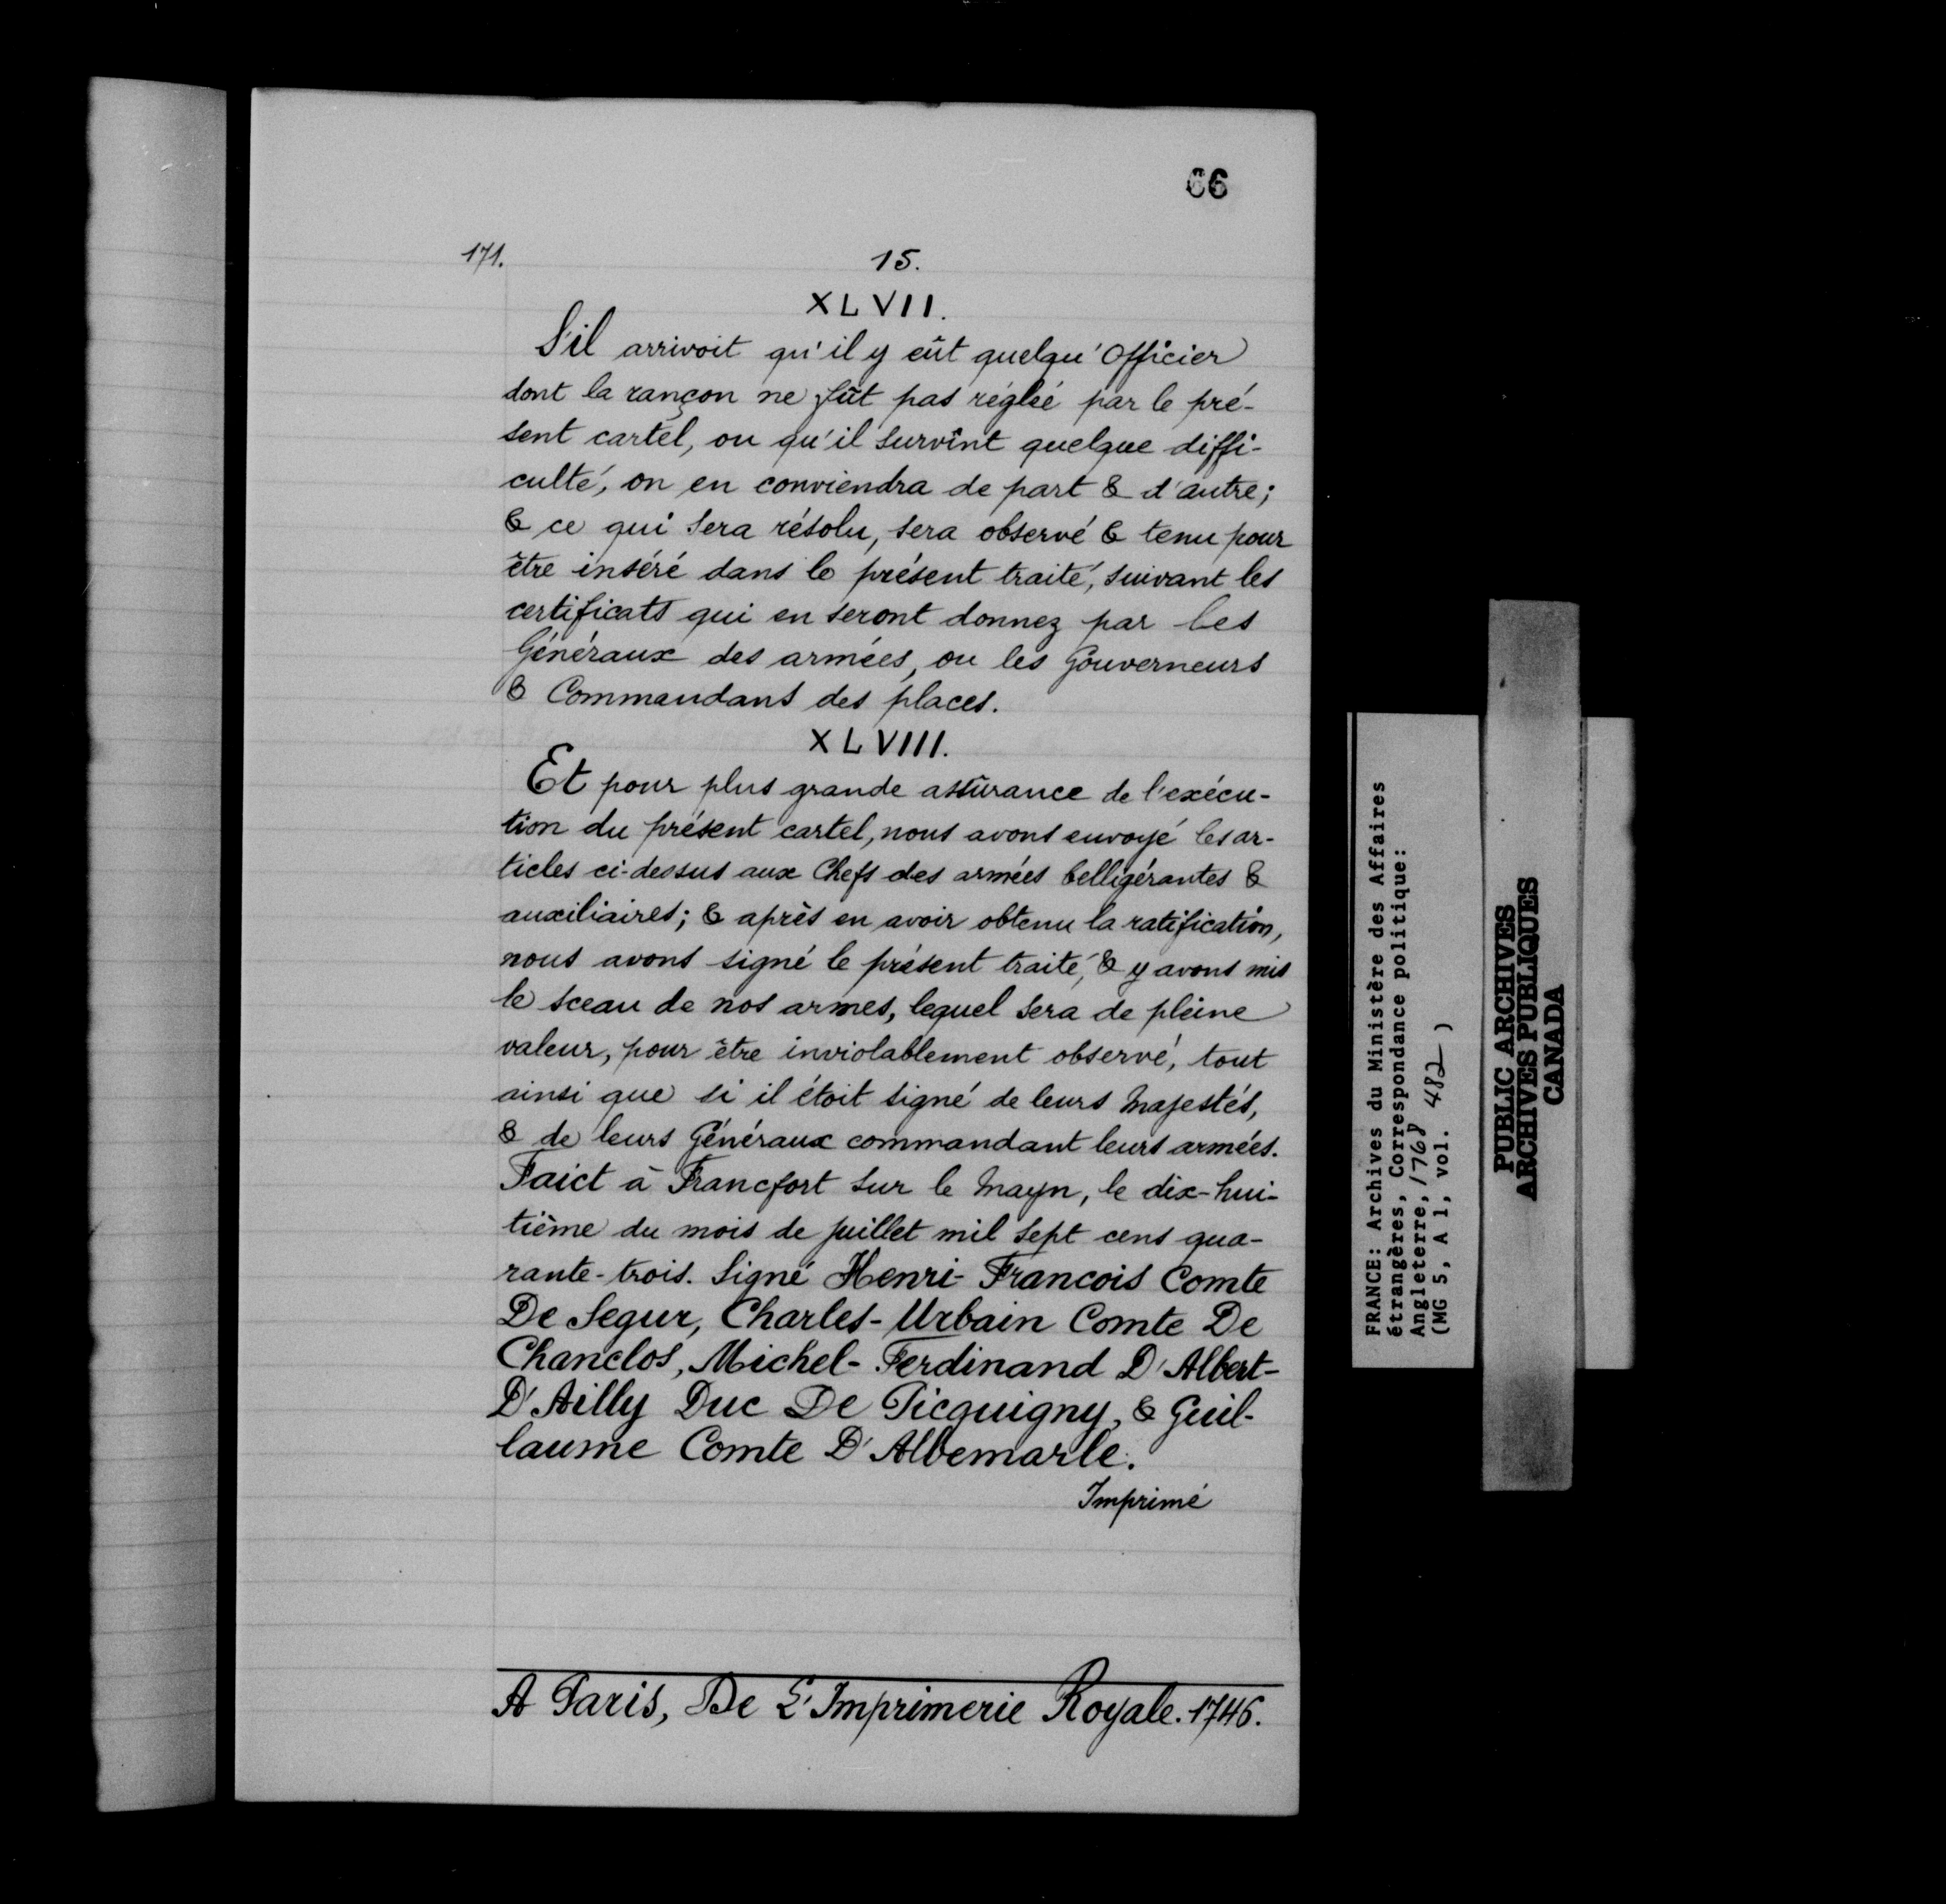 66
171.
15.
XLVII.
S'il arrivoit qu'il y eût quelqu'Officier
dont la rançon ne fût pas réglée par le pré-
sent cartel, ou qu'il survînt quelque diffi-
culté, on en conviendra de part & d'autre;
& ce qui sera résolu, sera observé & tenu pour
être inséré dans le présent traité, suivant les
certificats qui en seront donnez par les
Généraux des armées, ou les Gouverneurs
& Commandans des places.
XLVIII.
Et pour plus grande assûrance de l'exécu-
tion du présent cartel, nous avons envoyé les ar-
ticles ci-dessus aux Chefs des armées belligérantes &
auxiliaires; & après en avoir obtenu la ratification,
nous avons signé le présent traité, & y avons mis
le sceau de nos armes, lequel sera de pleine
valeur, pour être inviolablement observé, tout
ainsi que si il étoit signé de leurs Majestés,
& de leurs Généraux commandant leurs armées.
Faict à Francfort sur le Mayn, le dix-hui-
tième du mois de juillet mil sept cens qua-
rante-trois. Signé Henri-Francois Comte
De Segur, Charles-Urbain Comte De
Chanclos, Michel-Ferdinand D'Albert-
D'Ailly Duc De Picquigny, & Guil-
laume Comte D'Albemarle.
Imprimé
A Paris, De L'Imprimerie Royale. 1746.
FRANCE: Archives du Ministère des Affaires
étrangères, Correspondance politique:
Angleterre, 1768
(MG 5, A 1, vol. 482 )
PUBLIC ARCHIVES
ARCHIVES PUBLIQUES
CANADA